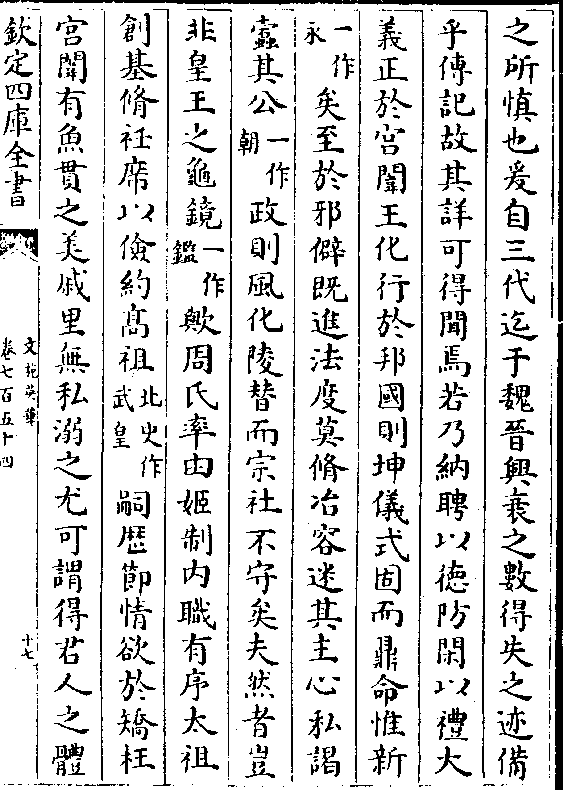 之所慎也爰自三代迄于魏晉興衰之數得失之迹備
乎傳記故其詳可得聞焉若乃納聘以徳防閑以禮大
義正於宫闈王化行於邦國則坤儀式固而鼎命惟新
一作永矣至於邪僻既進法度莫脩冶容迷其主心私謁
蠧其公一作朝政則風化陵替而宗社不守矣夫然者豈
非皇王之龜鏡一作鑑歟周氏率由姬制内職有序太祖
創基脩袵席以儉約髙祖北史作武皇嗣歴節情欲於矯枉
宫闈有魚貫之美戚里無私溺之尤可謂得君人之體
欽定四庫全書
文苑英華
卷七百五十四
十七